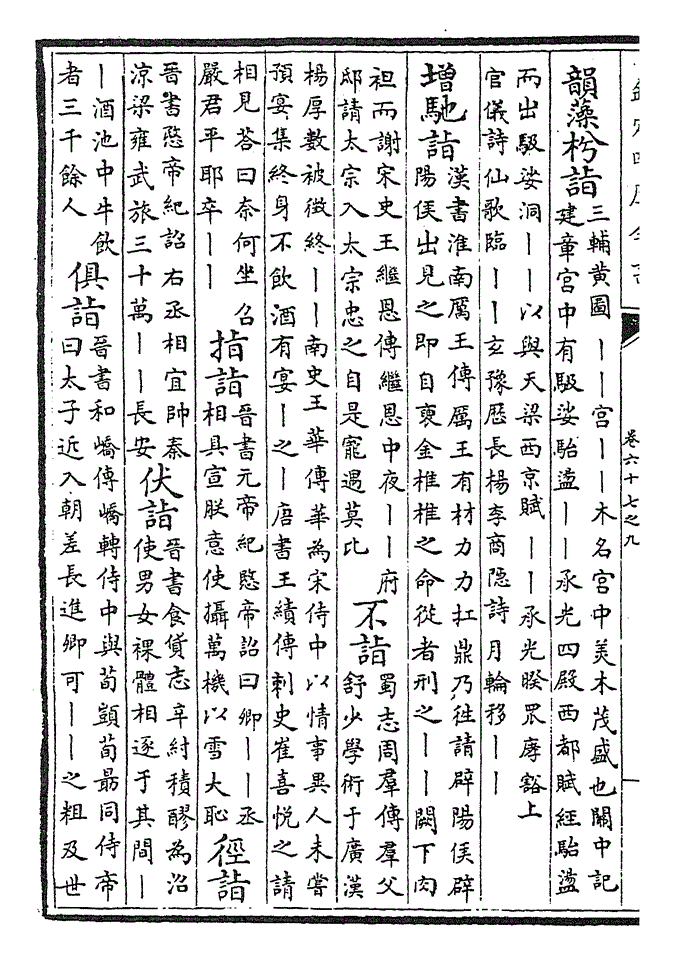 欽定四庫全書
卷六十七之九
韻藻枍詣
三輔黄圖丨丨宮丨丨木名宮中美木茂盛也關中記
建章宮中有馺娑駘盪丨丨承光四殿西都賦經駘盪
而出馺娑洞丨丨以與天梁西京賦丨丨承光睽眾庨豁上
官儀詩仙歌臨丨丨玄豫歴長楊李商隠詩月輪移丨丨
增馳詣
漢書淮南厲王傳厲王有材力力扛鼎乃往請辟陽侯辟
陽侯出見之即自褏金椎椎之命從者刑之丨丨闕下肉
袒而謝宋史王繼恩傳繼恩中夜丨丨府
邸請太宗入太宗忠之自是寵遇莫比
不詣
蜀志周羣傳羣父
舒少學術于廣漢
楊厚數被徴終丨丨南史王華傳華為宋侍中以情事異人未嘗
預宴集終身不飲酒有宴丨之丨唐書王績傳刺史崔喜悦之請
相見荅曰奈何坐召
嚴君平耶卒丨丨
指詣
晉書元帝紀愍帝詔曰卿丨丨丞
相具宣朕意使攝萬機以雪大恥
徑詣
晉書愍帝紀詔右丞相宜帥秦
涼梁雍武旅三十萬丨丨長安
伏詣
晉書食貨志辛紂積醪為沼
使男女裸體相逐于其間丨
丨酒池中牛飲
者三千餘人
俱詣
晉書和嶠傳嶠轉侍中與荀顗荀勗同侍帝
曰太子近入朝差長進卿可丨丨之粗及世